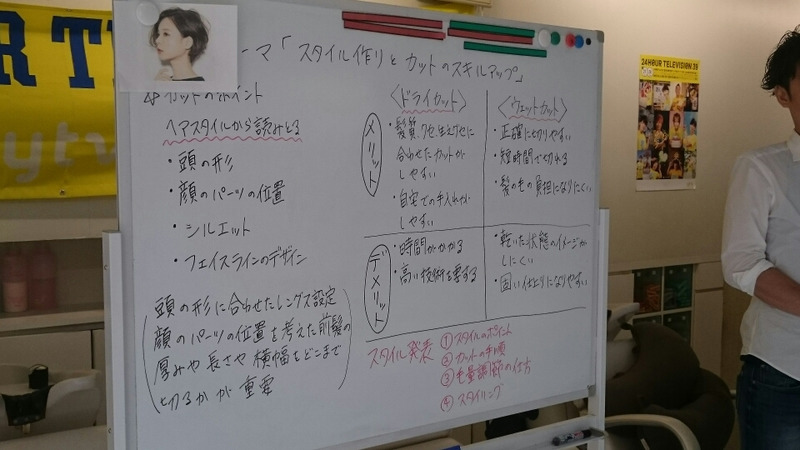 ーマ「スタイル作りと カットのスキルアップ」
カットのポイント
ヘアスタイルから読みとる
・頭の形
・顔のパーツの位置
・シルエット
・フェイスラインのデザイン
頭の形に合わせたレングス設定
顔のパーツの位置を考えた前髪の
厚みや長さや横幅をどこまで
切るかが重要
〈ドライカット〉
メリット
・髪質、クセ、生えグセに
合わせたカットが
しやすい
・自宅での手入れが
しやすい
〈ウェットカット〉
・正確に切りやすい
・短時間で切れる
・髪のもの負担になりにくい
デメリット
・時間がかかる
・高い技術を要する
・乾いた状態のイメージが
しにくい
・固い仕上りになりやすい
スタイル発表
①スタイルのポイント
②カットの手順
③毛量調節の仕方
④スタイリング
24HOUR TELEVISION 38
ytv